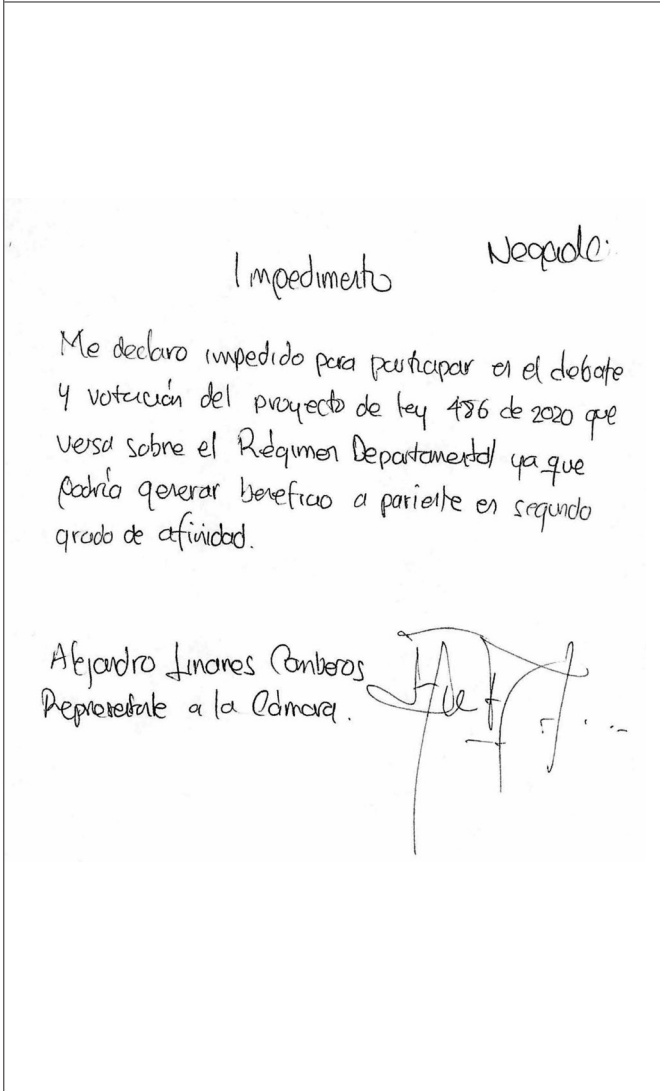 Negado.
Impedimento
Me declaro impedido para participar en el debate
y votación del proyecto de ley 486 de 2020 que
versa sobre el Régimen Departamental ya que
podría generar beneficio a pariente en segundo
grado de afinidad.
Alejandro Linares Camberos
Representante a la Cámara.